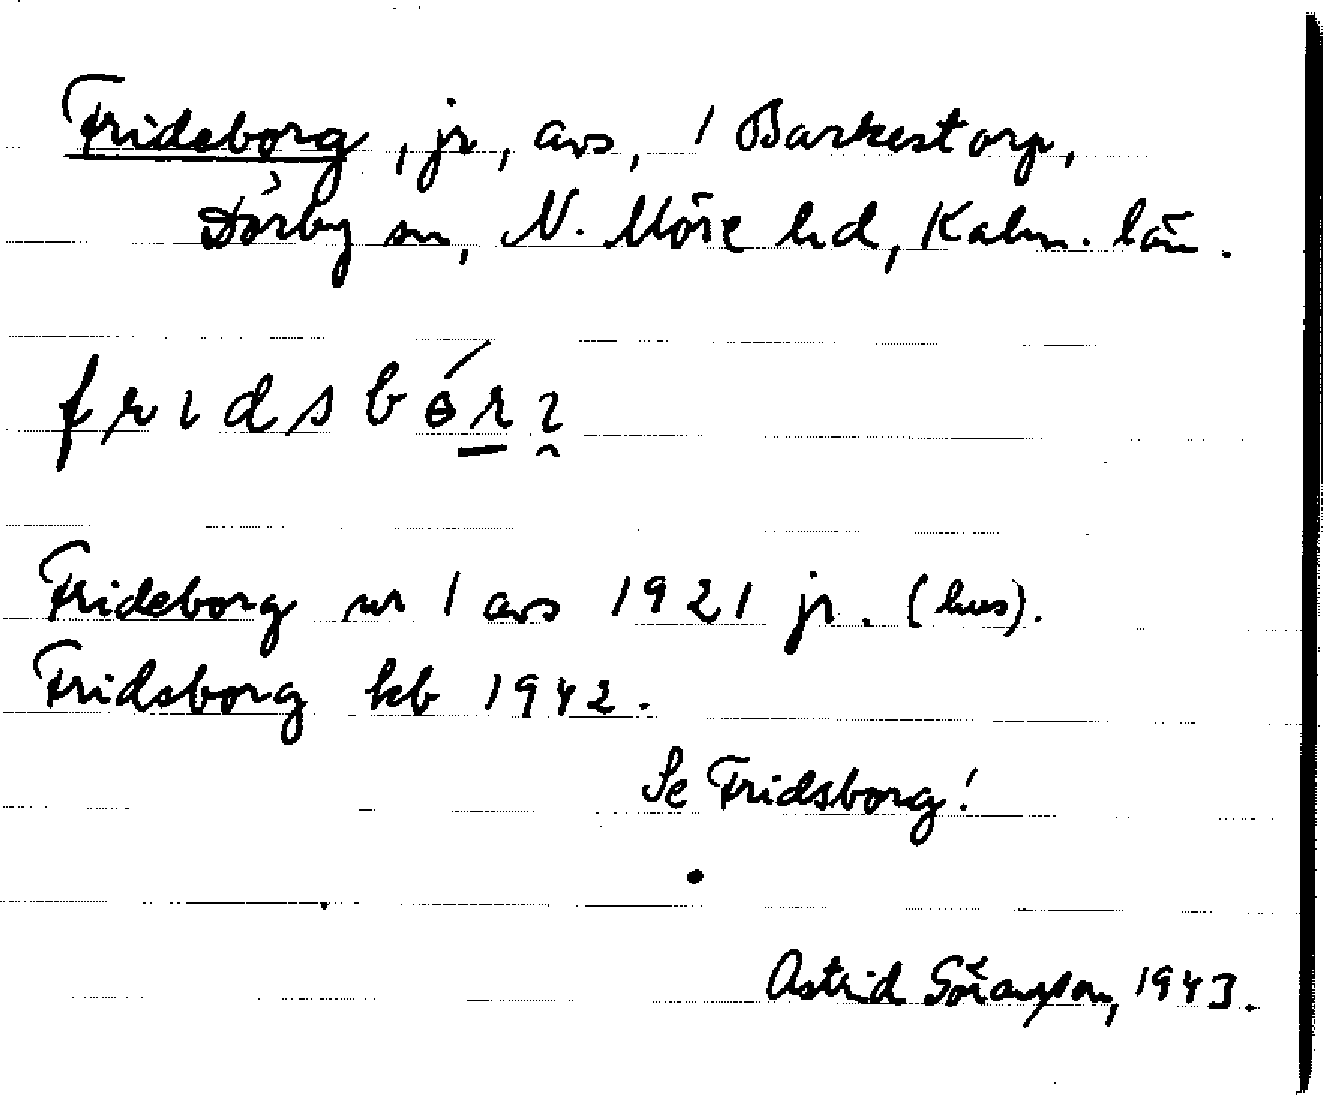 Frideborg, jr, avs, 1 Barkestorp,
Dörby sn, N. Möre hd, Kalm. län.
fridsbórı
Frideborg nr 1 avs 1921 jr. (hus).
Fridsborg kb 1942.
Se Fridsborg!
Astrid Göransson, 1943.